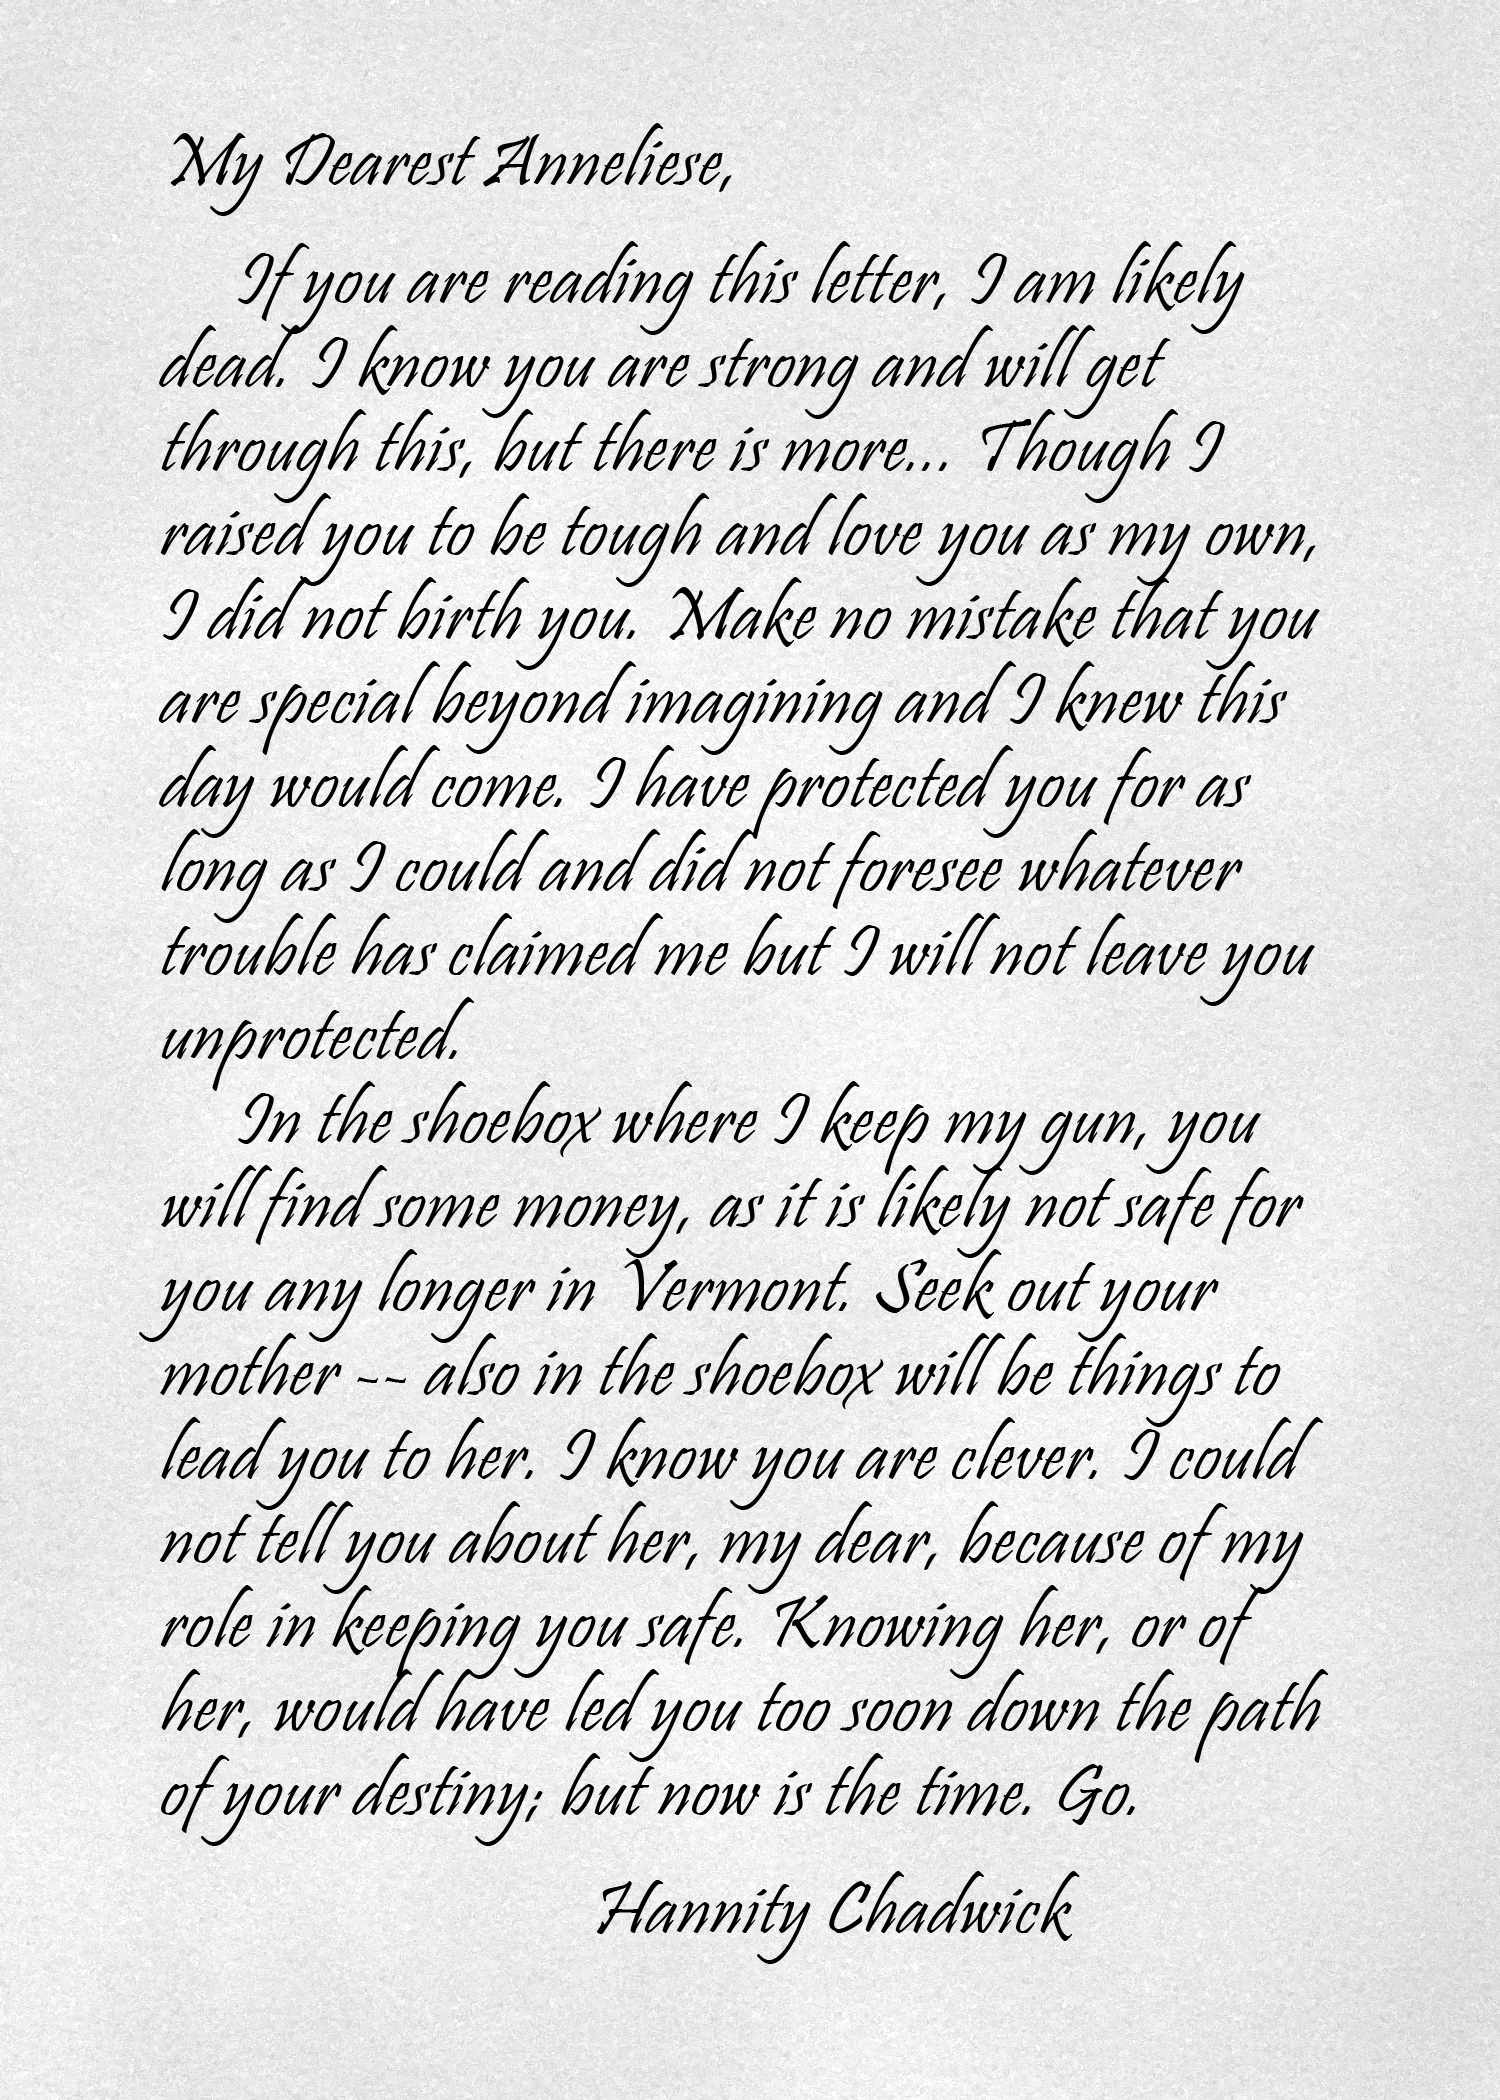 My Dearest Anneliese,
If you are reading this letter, I am likely
dead. I know you are strong and will get
through this, but there is more... Though I
raised you to be tough and love you as my own,
I did not birth you. Make no mistake that you
are special beyond imagining and I knew this
day would come. I have protected you for as
long as I could and did not foresee whatever
trouble has claimed me but I will not leave you
unprotected.
In the shoebox where I keep my gun, you
will find some money, as it is likely not safe for
you any longer in Vermont. Seek out your
mother -- also in the shoebox will be things to
lead you to her. I know you are clever. I could
not tell you about her, my dear, because of my
role in keeping you safe. Knowing her, or of
her, would have led you too soon down the path
of your destiny; but now is the time. Go.
Hannity Chadwick